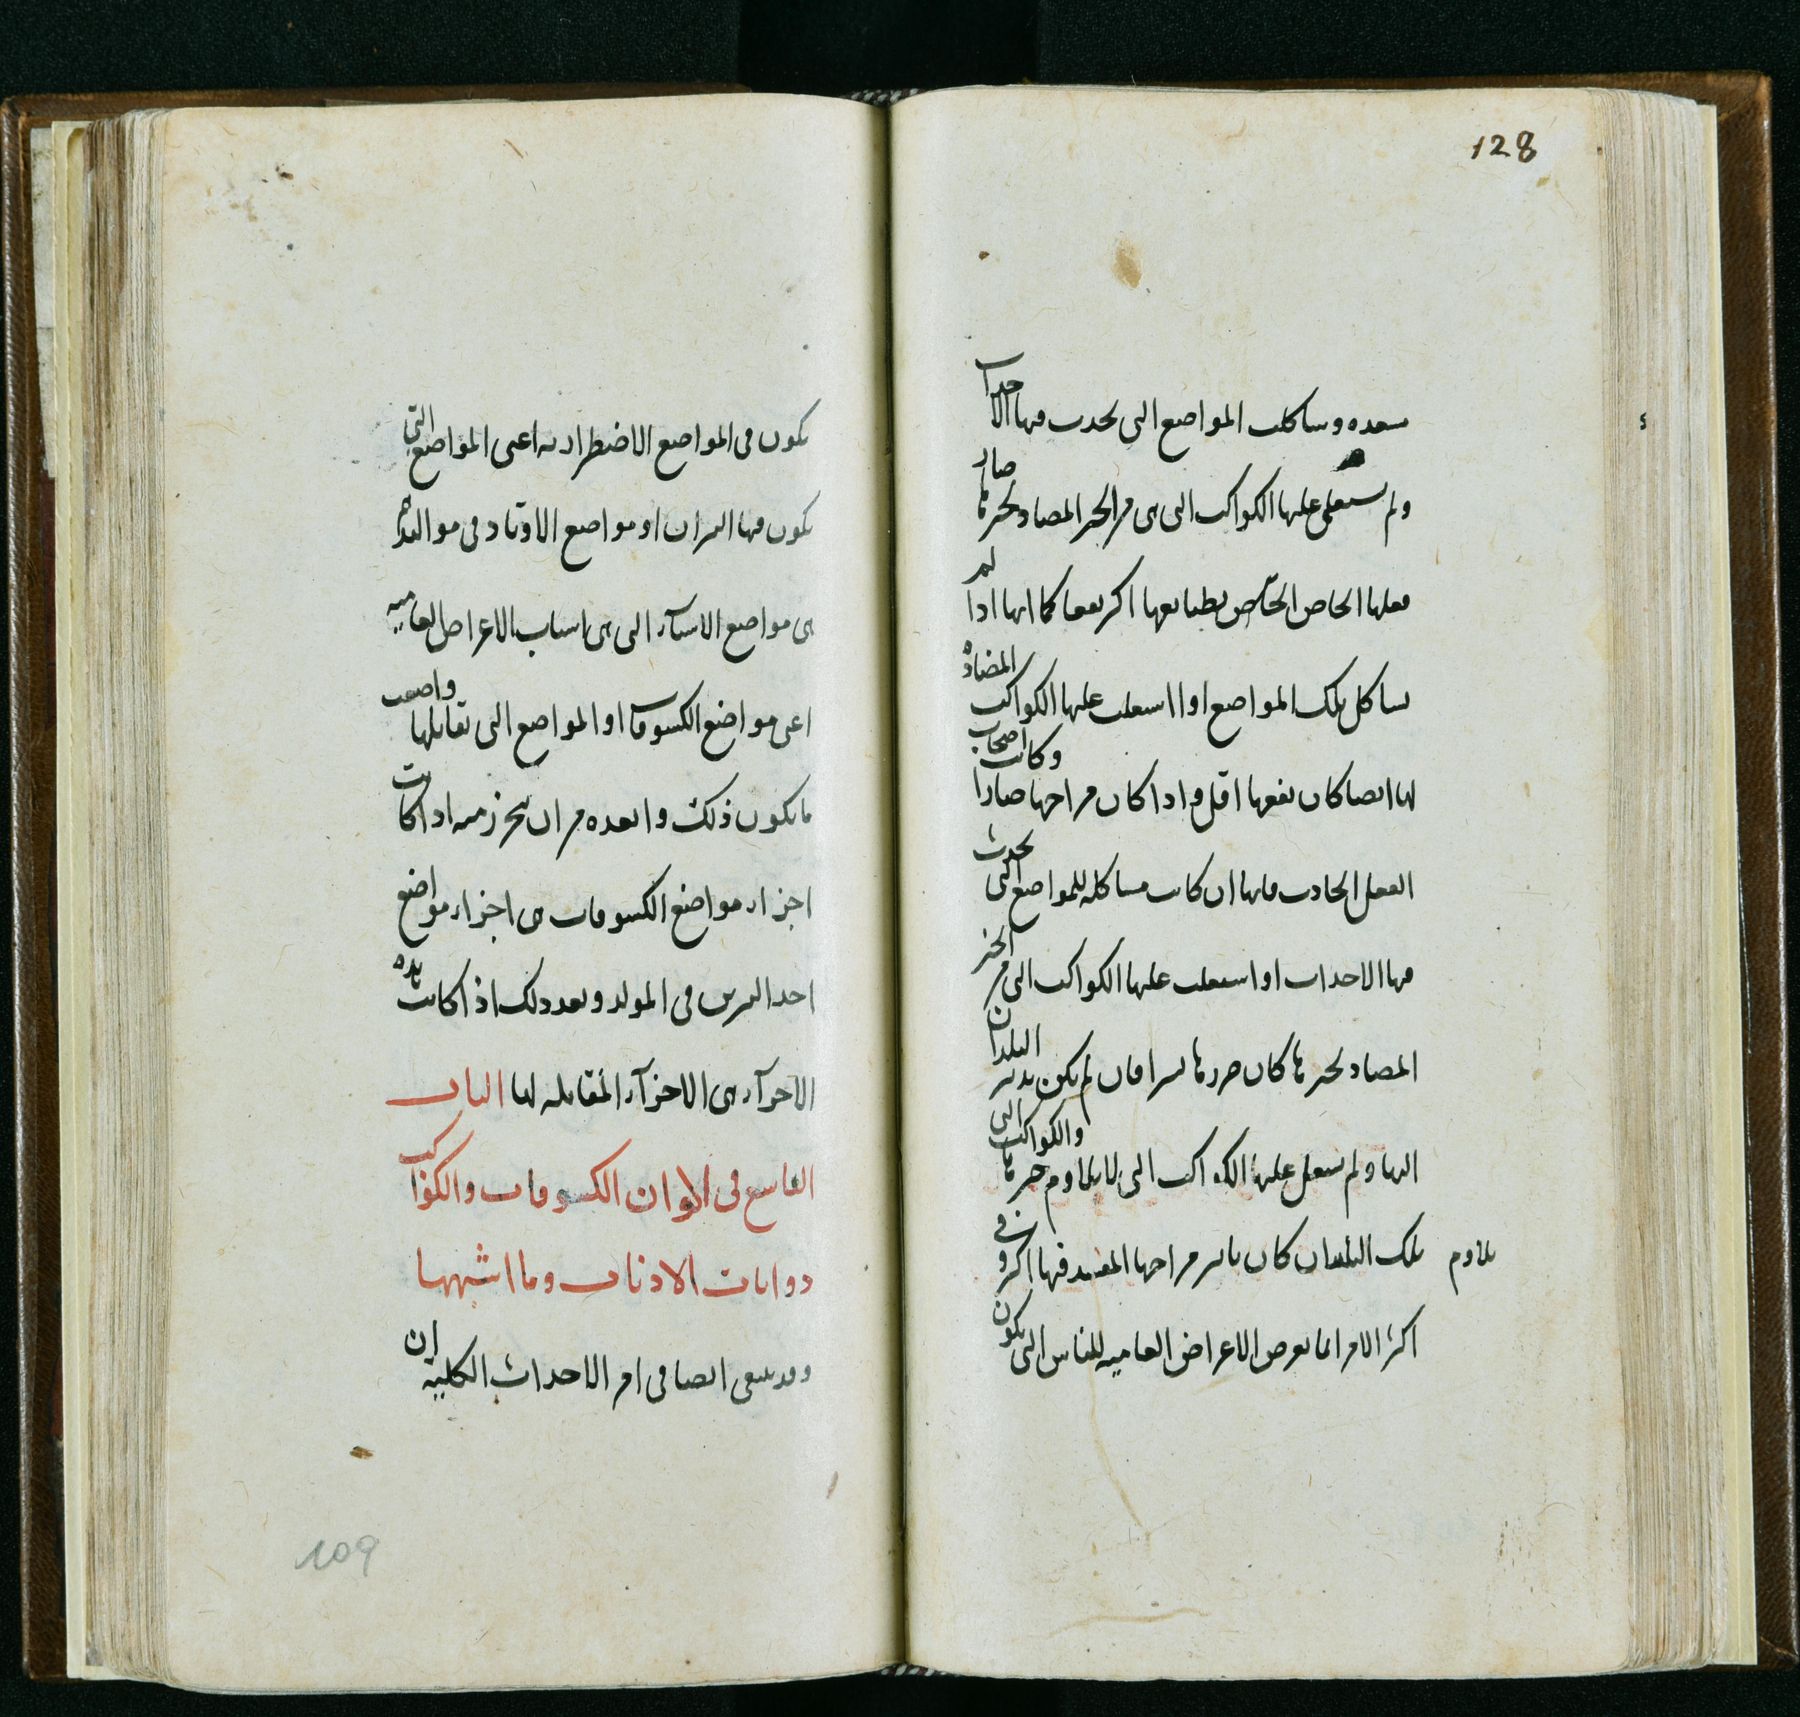 128
سعده وساكلت المواضع التى تحدث فيها الاحداث
ولم تستعلى عليها الكواكب التى هى من الحيز المضاد لحيزها صار
فعلها الخاص الخاص بطبايعها اكثر نفعا كما انها اذا لم
تشاكل تلك المواضع او استعلت عليها الكواكب المضاده
لها ايضا كان نفعها اقل واذا كان مزاجها ضارا وكانت اصحاب
الفعل الحادث فانها ان كانت مشاكله للمواضع التى تحدث
فيها الاحداث او استعلت عليها الكواكب التى من الحيز
المضاد لحيزها كان ضررها يسيرا فان لم يكن تدبير البلدان
اليها ولم تستعل عليها الكواكب التى لا تلاوم حيزها والكواكب التى
تلاوم تلك البلدان كان تاثير مزاجها المفسد فيها اكثر وفى
اكثر الامر انما تعرض الاعراض العاميه للناس التى تكون
تكون فى المواضع الاضطراريه اعنى المواضع التى
تكون فيها النيران او مواضع الاوتاد فى مواليدهم
هى مواضع الاشيآء التى هى اسباب الاعراض العاميه
اعنى مواضع الكسوفات او المواضع التى تقابلها واصعب
ما يكون ذلك وابعده من ان يتحرز منه اذا كانت
اجزاء مواضع الكسوفات هى اجزاء مواضع
احد النيرين فى المولد وبعد ذلك اذا كانت هذه
الاجزآء هى الاجزآء المقابله لها الباب
التاسع فى الوان الكسوفات والكواكب
ذوابات الاذناب وما اشبهها
وقد ينبغى ايضا فى امر الاحداث الكليه ان
109